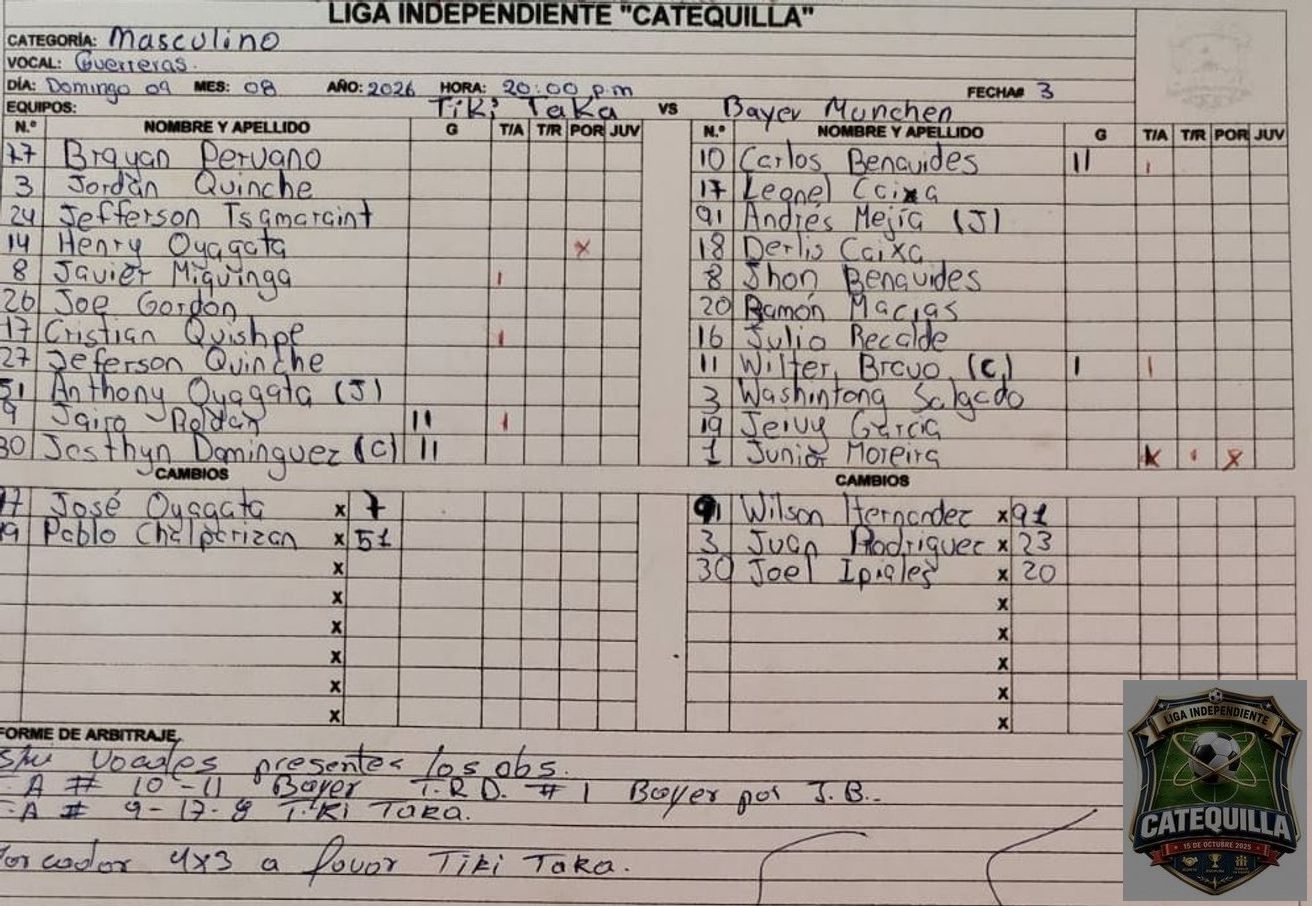 LIGA INDEPENDIENTE "CATEQUILLA"
CATEGORÍA: Masculino
VOCAL: Guerreras.
DÍA: Domingo 09 MES: 08 AÑO: 2026 HORA: 20:00 p.m FECHA# 3
EQUIPOS: Tiki Taka VS Bayer Munchen
N.º NOMBRE Y APELLIDO G T/A T/R POR JUV
77 Brayan Peruano
3 Jordàn Quinche
24 Jefferson Tsamaraint
14 Henry Oyagata x
8 Javier Miquinga I
20 Joe Gordon
17 Cristian Quishpe I
27 Jeferson Quinche
51 Anthony Oyagata (J)
9 Jairo Roldán II I
30 Josthyn Dominguez (C) II
CAMBIOS
77 José Oyagata x 7
19 Pablo x 51
x
x
x
x
x
x
N.º NOMBRE Y APELLIDO G T/A T/R POR JUV
10 Carlos Benavides II I
17 Leonel Caixa
91 Andrés Mejía (J)
18 Derlis Caixa
8 Jhon Benavides
20 Ramón Macias
16 Julio Recalde
11 Wilter Bravo (C) I I
3 Washintong Salgado
19 Jervy Garcia
1 Junior Moreira x I x
CAMBIOS
91 Wilson Hernandez x 91
3 Juan Rodriguez x 23
30 Joel Ipiales x 20
x
x
x
x
x
FORME DE ARBITRAJE
Vocales presentes los obs.
A # 10-11 Bayer T.R.D. # 1 Bayer por J.B.-
A # 9-17-8 Tiki Taka.
arcador 4x3 a favor Tiki Taka.
LIGA INDEPENDIENTE
CATEQUILLA
15 DE OCTUBRE 2025